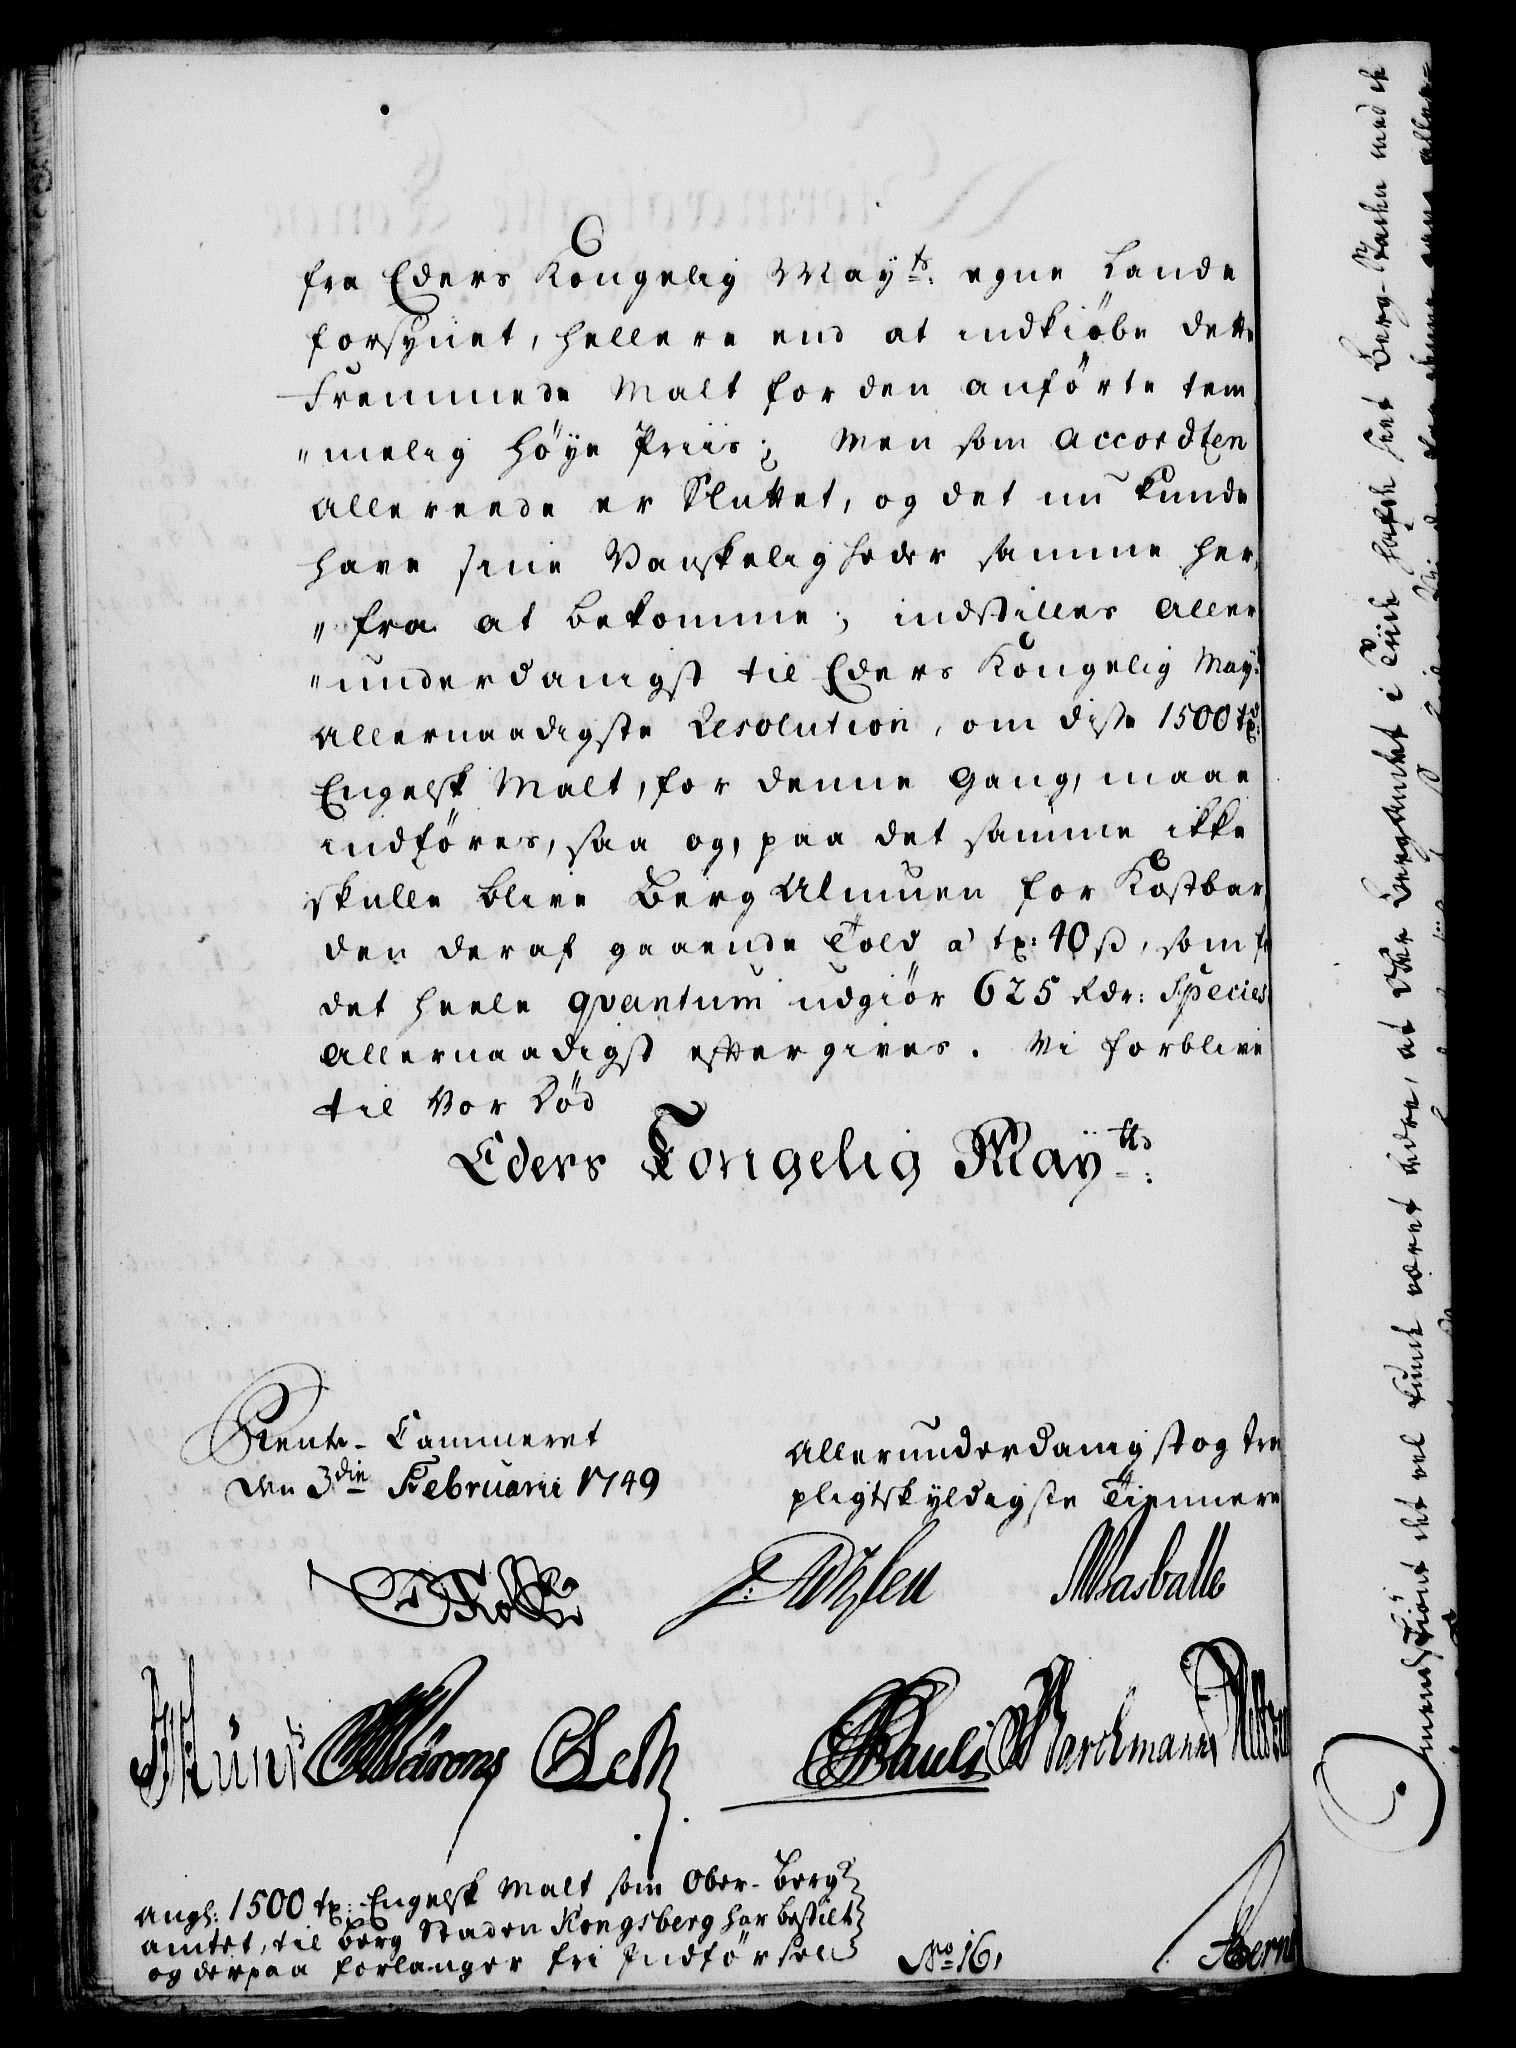 fra Eders Kongelig May.ts egne Lande
forsynet, hellere end at indkiöbe dette
Fremmede Malt for den anförte tem
"melig höye Priis; Men som Accordten
allereede er Sluttet, og det nu kunde
have sine Vanskeligheder samme her,
"fra at bekomme; indstilles aller
"underdanigst til Eders Kongelig May.ts
Allernaadigste Resolution, om disse 1500 td:
Engelsk Malt, for denne Gang, maae
indföres, saa og, paa det samme ikke
skulle blive Berg Almuen for Kostbar
den deraf gaaende Told a' tr: 40 ß, som f
det heele qvantum udgiör 625 Rdr: Species
Allernaadigst eftergives. Vi forblive
til Vor Död
Eders Kongelig May.tts:
Rente-Cammeret
den 3die Februarii 1749
Allerunderdanigst og tro
pligtskyldigste Tiennere
Holck
Masballe
Pauli Barchmann
angl: 1500 tr: Engelsk Malt som Ober-Berg
amtet, til Berg Staden Kongsberg har bestilt
og derpaa forlanger fri Indförsel
No 16,
Imidlertiid det vel kunde været bedre, at Ober Bergamtet i Tiide hafde sat Berg-Staden med de